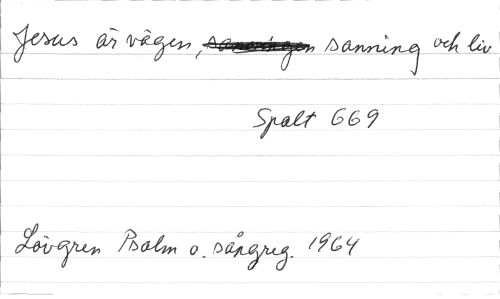 Jesus är vägen, sanningen sanning och liv
Spalt 669
Lövgren Psalm o. sångreg. 1964